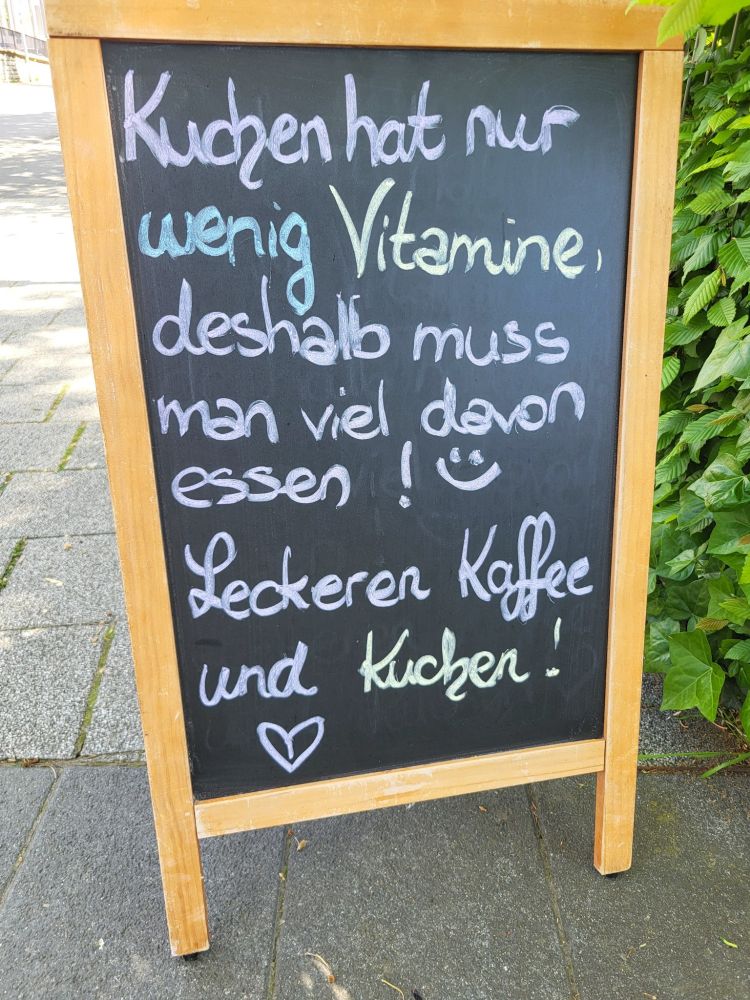 Kuchen hat nur
wenig Vitamine,
deshalb muss
man viel davon
essen !
Leckeren Kaffee
und Kuchen !